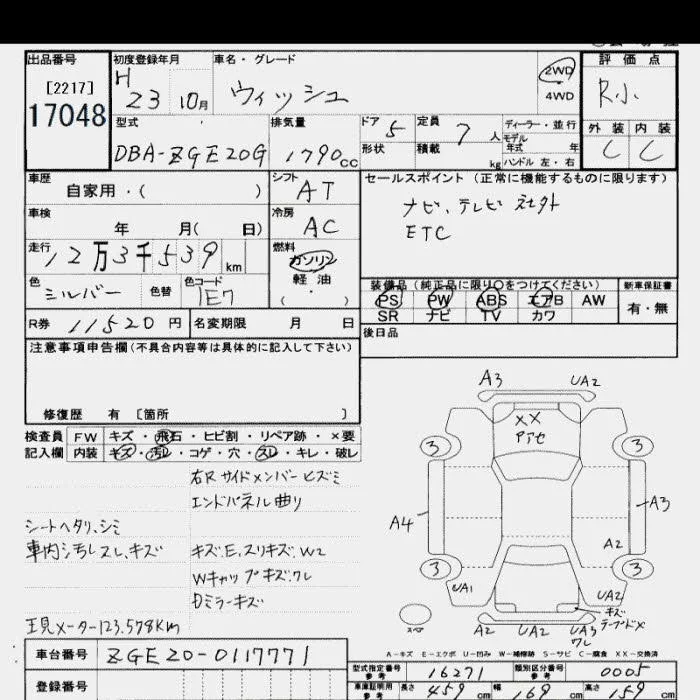 出品番号
[2217]
17048
初度登録年月
H
23 10月
車名・グレード
ウィッシュ
2WD
4WD
評価点
R小
外装 内装
C C
型式
DBA-ZGE20G
排気量
1790cc
ドア 5
形状
定員 7 人
積載 kg
ディーラー・並行
モデル
年式 年
ハンドル 左・右
車歴
自家用・( )
シフト
AT
セールスポイント (正常に機能するものに限ります)
ナビ、テレビ 社外
ETC
車検
年 月( 日)
冷房
AC
走行
12万3千539km
燃料
ガソリン
軽油
( ・ )
色
シルバー
色替
色コード
1E7
装備品(純正品に限り○をつけてください)
PS PW ABS エアB AW
SR ナビ TV カワ
新車保証書
有・無
R券 11520円
名変期限 月 日
後日品
注意事項申告欄(不具合内容等は具体的に記入して下さい)
修復歴 有 [箇所 ]
検査員
記入欄
FW キズ・飛石・ヒビ割・リペア跡・×要
内装 キズ・汚レ・コゲ・穴・スレ・キレ・破レ
右Rサイドメンバーヒズミ
エンドパネル曲り
シートヘタリ、シミ
車内汚レスレ、キズ
キズE、スリキズ、W2
Wキャップキズ、ワレ
Dミラーキズ
現メーター123,578Km
A3 UA2
XX
アアセ
3 3
A4 A3
A2
3 3
UA1 UA2
キズ
テープドメ
A2 UA2 UA3
ワレ
スペア
A-キズ E-エクボ U-凹み W-補修跡 S-サビ C-腐食 XX-交換済
車台番号 ZGE20-0117771
型式指定番号
参考
16271
類別区分番号
参考
0005
登録番号
車庫証明用
参考
長さ 459cm
幅 169cm
高さ 159cm